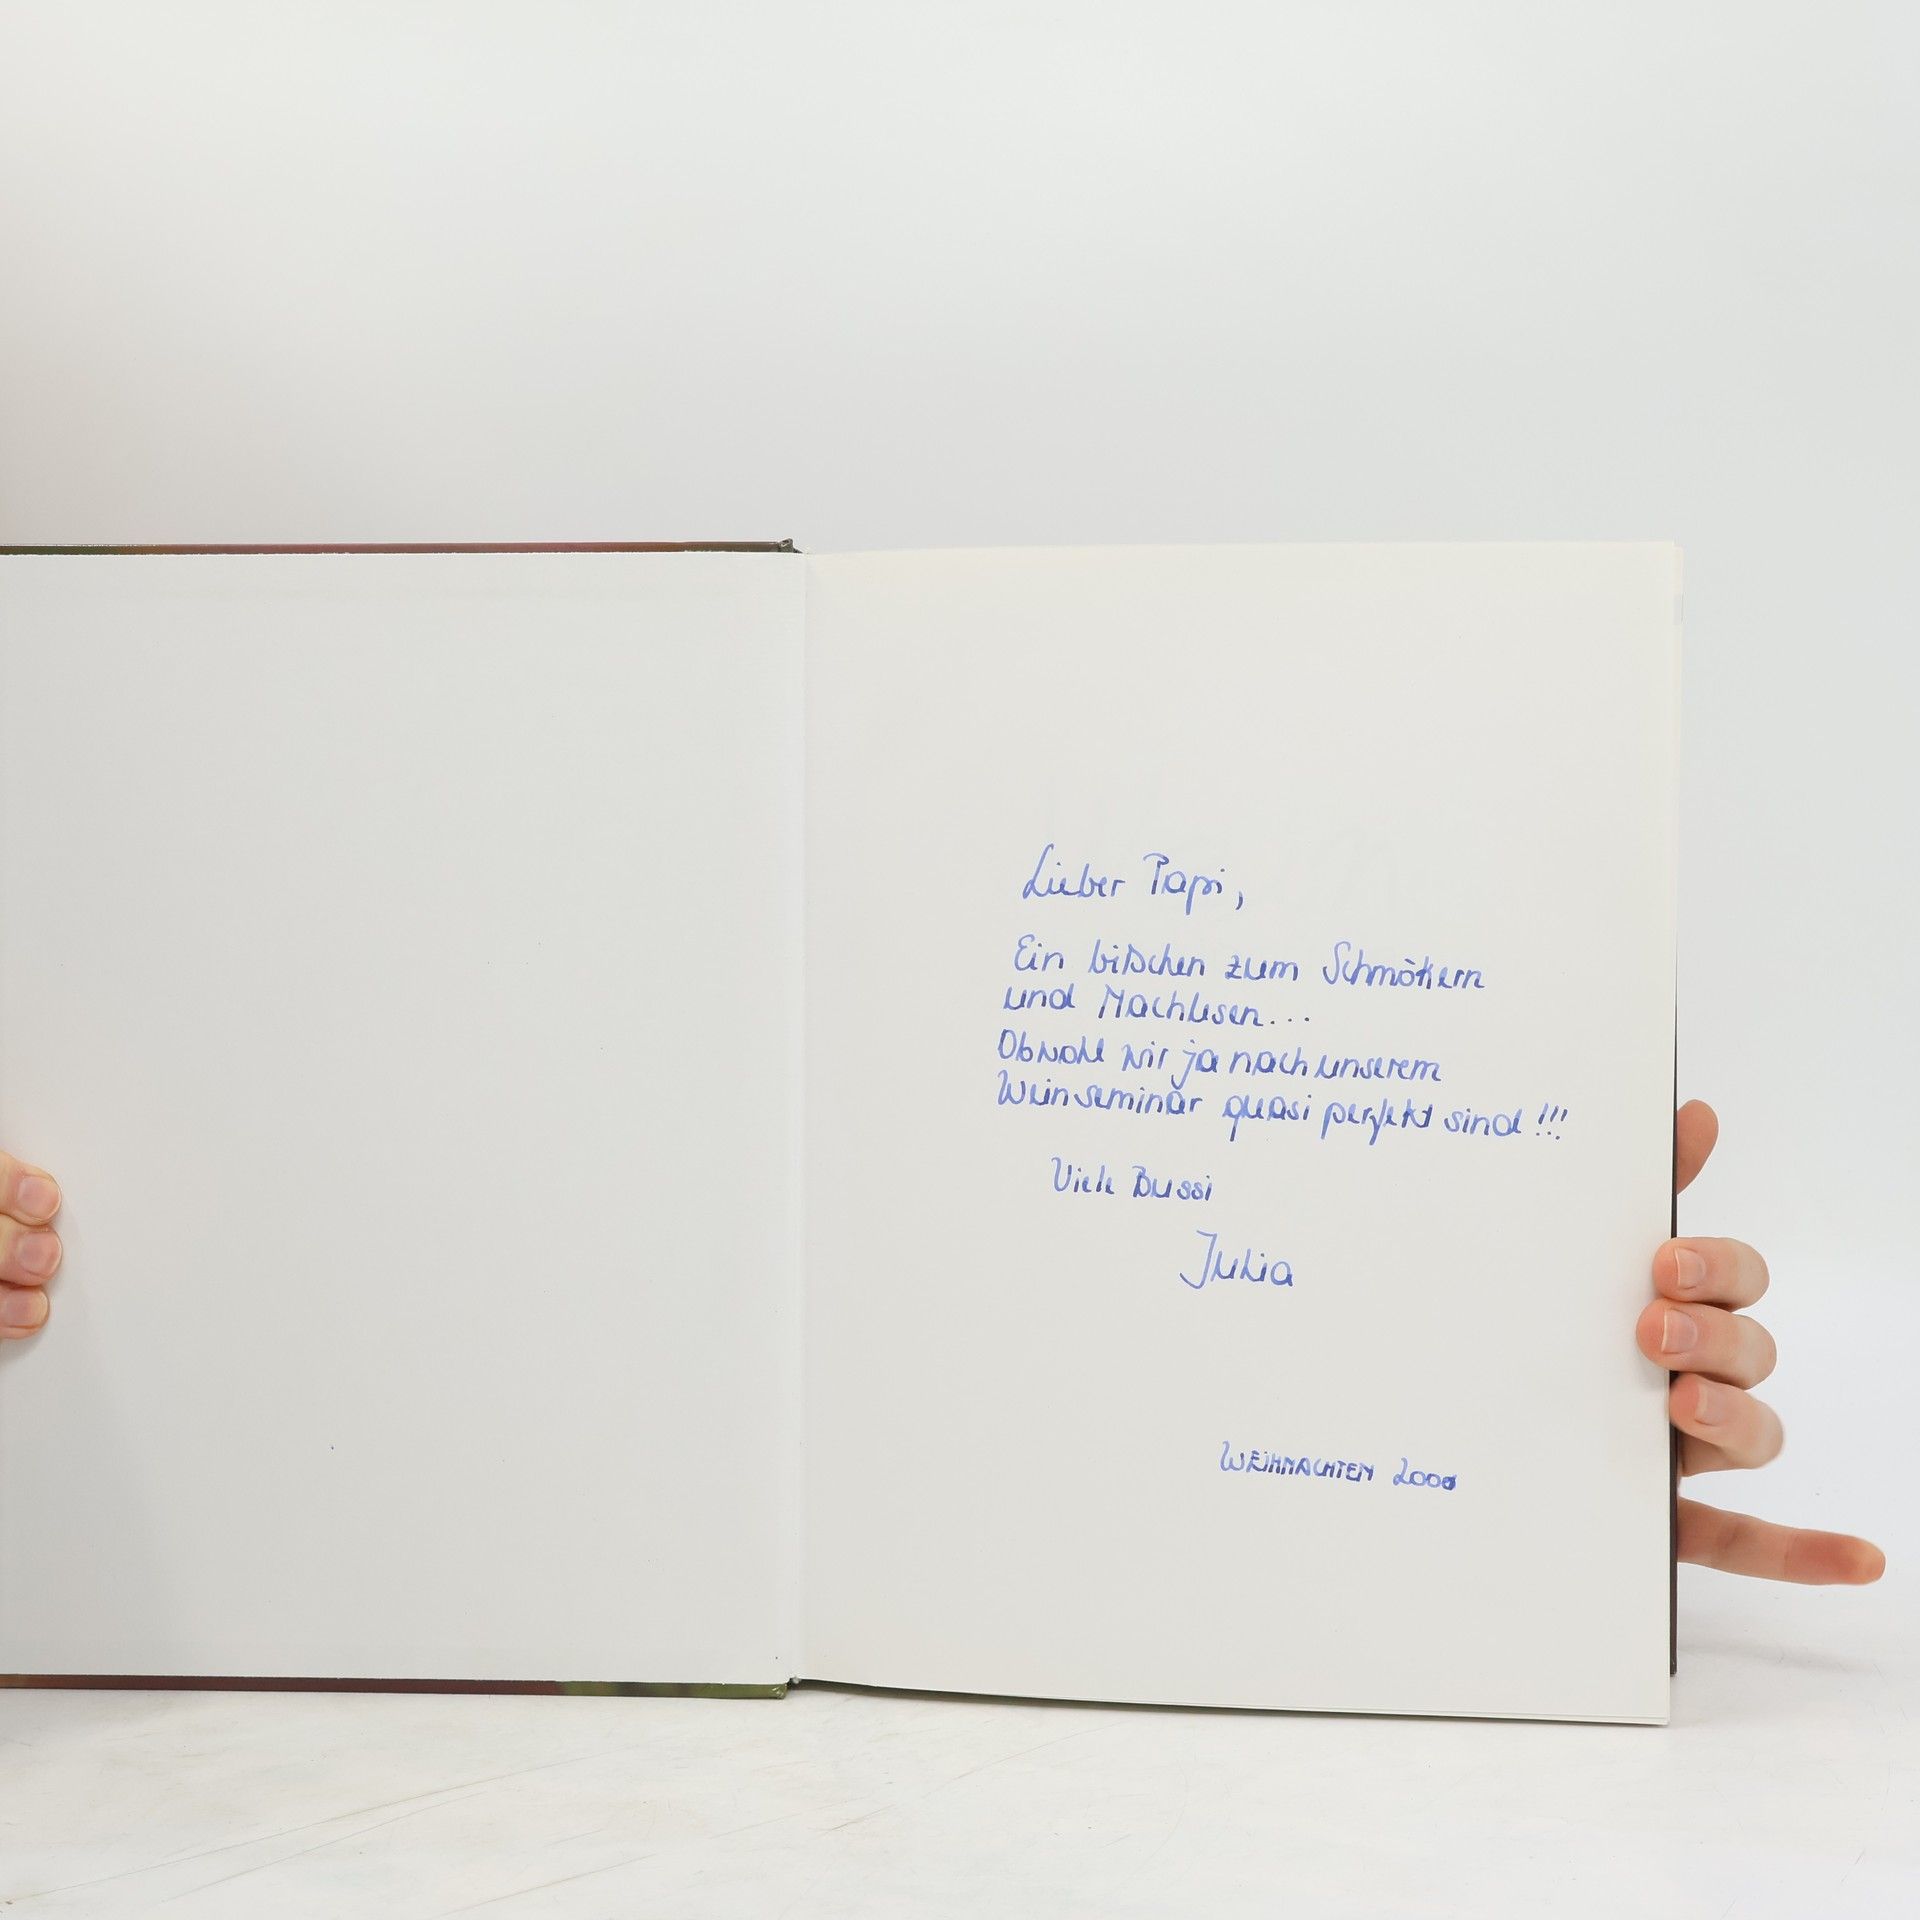 Lieber Papi,
Ein bißchen zum Schmökern
und Nachlesen...
Obwohl wir ja nach unserem
Weinseminar quasi perfekt sind!!!
Viele Bussi
Julia
WEIHNACHTEN 2000